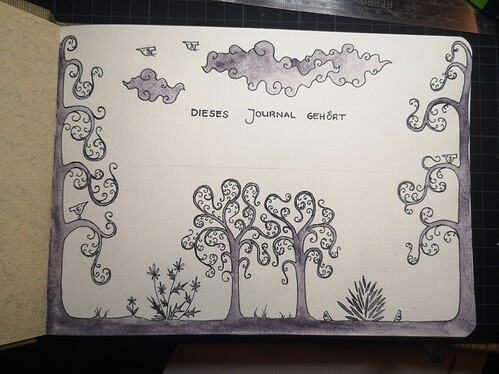 DIESES JOURNAL GEHÖRT